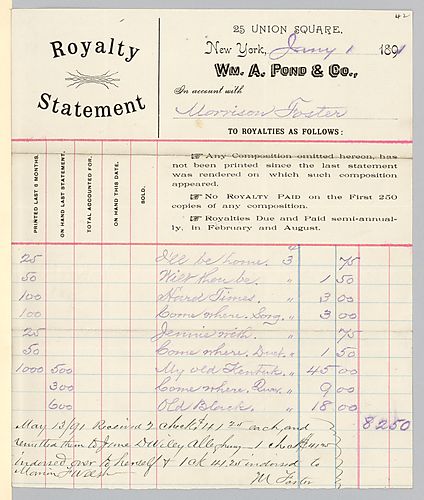 42
25 UNION SQUARE.
New York, Jany 1 1891
Royalty
Statement
WM. A. POND & CO.,
In account with
Morrison Foster
TO ROYALTIES AS FOLLOWS:
PRINTED LAST 6 MONTHS.
ON HAND LAST STATEMENT.
TOTAL ACCOUNTED FOR.
ON HAND THIS DATE.
SOLD.
☞ Any Composition omitted hereon, has
not been printed since the last statement
was rendered on which such composition
appeared.
☞ No ROYALTY PAID on the First 250
copies of any composition.
☞ Royalties Due and Paid semi-annual-
ly, in February and August.
25 I'll be home. 3 75
50 Wilt thou be. " 1 50
100 Hard Times. " 3 00
100 Come where. Song. " 3 00
25 Jennie with. " 75
50 Come where. Duet. " 1 50
1000 500 My old Kentuk. " 45 00
300 Come where. " 9 00
600 Old Black. " 18 00
82 50
May 13/91 Received 2 checks $41.25 each, and
remitted them to Allegheny 1 check $41.25
indorsed over to herself & 1 ck 41.25 indorsed to
Marion
M Foster